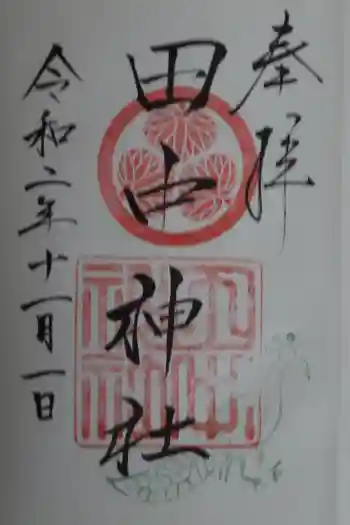 奉拝
田中神社
令和二年十一月一日